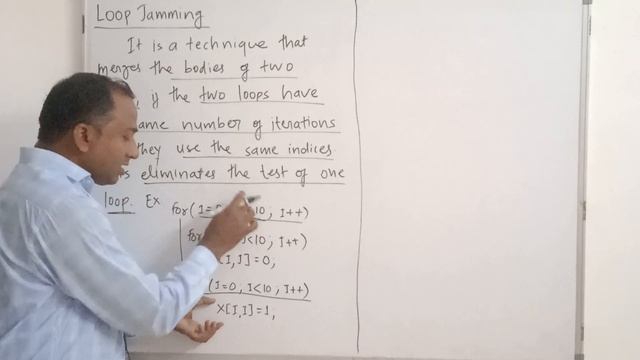 Loop Jamming
It is a technique that
merges the bodies of two
if the two loops have
number of iterations
use the same indices.
eliminates the test of one
loop. Ex for( I++)
I<10; I++)
=0;
(I=0, I<10, I++)
X[I,I]=1;